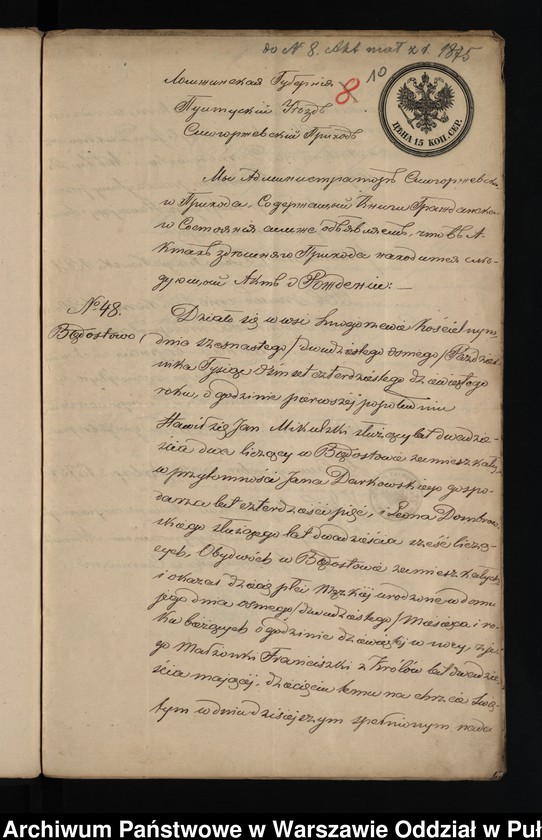 do N 8. Akt mał z r. 1875
10
8
Ломжинская Губернія
Пултускій Уѣздъ
Смогоржевскій Приходъ
ЦѢНА 15 КОП. СЕР.
Мы Администраторъ Смогоржевска-
го Прихода, Содержащый Книги Гражданска-
го Состоянія симже объявляемъ, что въ А-
ктахъ здѣшняго Прихода находится слѣ-
дующый Актъ о Рожденіи: —
№ 48.
Działo się w wsi Smogorzewie Kościelnym
dnia szesnastego / dwudziestego ósmego / Paździer-
nika Tysiąc Ośmset czterdziestego dziewiątego
roku, o godzinie pierwszej popołudniu
Stawił się Jan Mikulski służący lat dwadzie-
ścia dwa liczący w zamieszkały,
w przytomności Jana Darkowskiego gospo-
darza lat czterdzieści pięć, i Leona Dombrow-
skiego służącego lat dwadzieścia sześć liczą-
cych, Obydwóch w zamieszkałych
i okazał dziecię płci męzkiej urodzone w domu
jego dnia ósmego / dwudziestego / miesiąca i ro-
ku bieżących o godzinie dziewiątej w nocy, z je-
go Małżonki Franciszki z Królów lat dwadzie-
ścia mającej. dziecięciu temu na chrzcie świę-
tym w dniu dzisiejszym spełnionym nada
Archiwum Państwowe w Warszawie Oddział w Puł